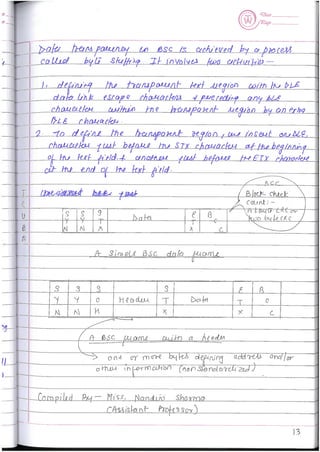 Date
Page
Data transparency in BSC is achieved by a process
called byte stuffing. It involves two activities —
1. defining the transparent text region with the DLE
data link escape characters & preceding any DLE
character within the transparent region by an extra
DLE character
2. To define the transparent region, we insert one DLE
character just before the STX character at the beginning
of the text field & another just before the ETX character
at the end of the text field.
BCC
Block check
count :-
S S S E B
Y Y T Data T C
N N X X C
A Simple BSC data frame
S S S S E B
Y Y O Header T Data T C
N N H X X C
A BSC frame with a header
→ one or more bytes defining address and/or
other information (non standardized)
Compiled By — Miss. Nandini Sharma
(Assistant Professor)
13